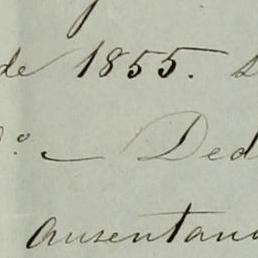 de 1855.
Ded
ausentan